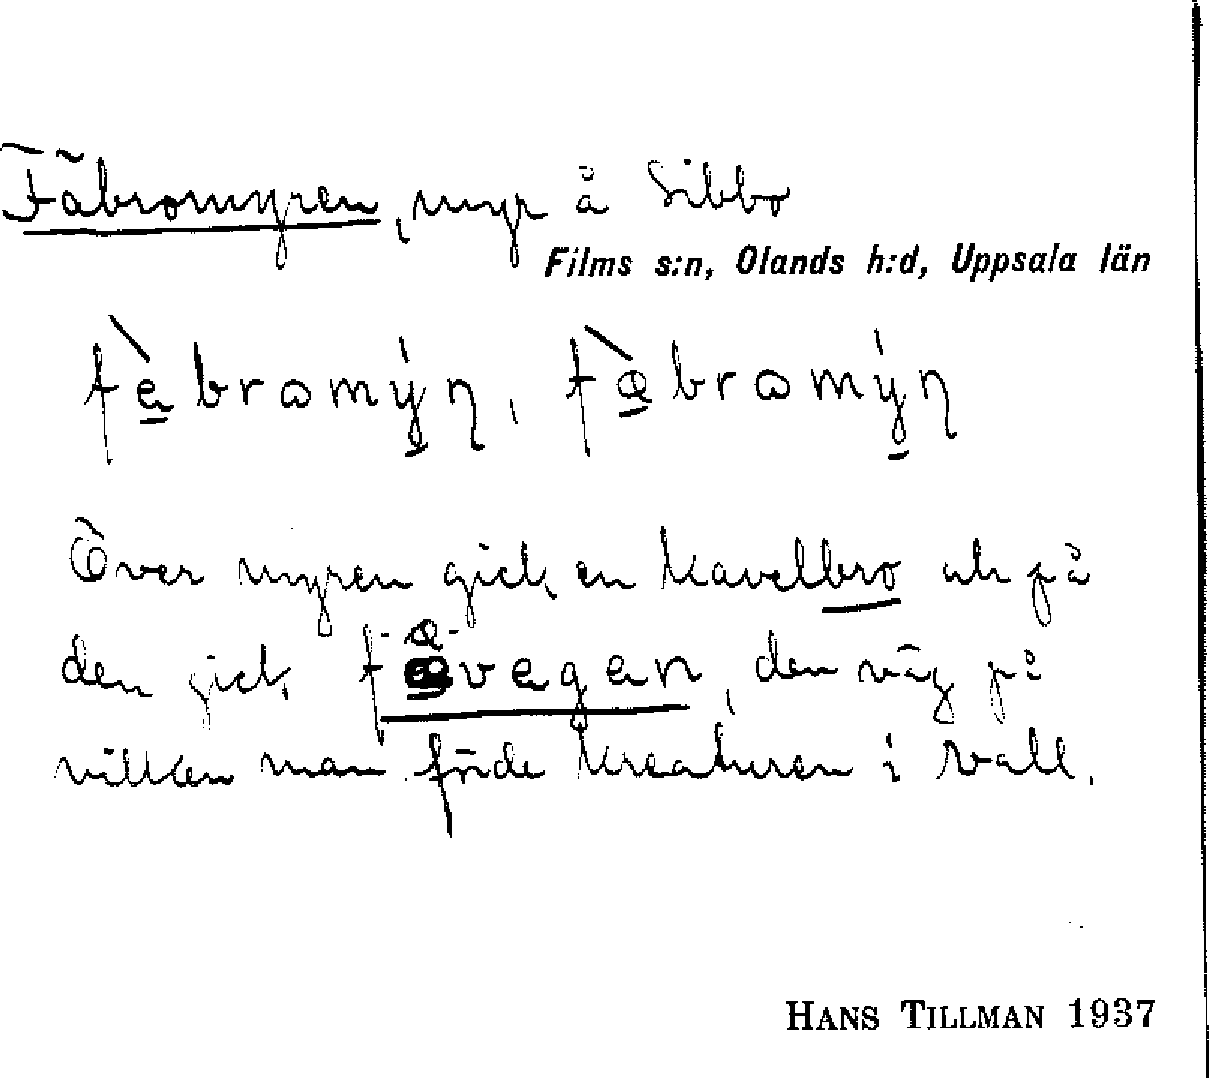 Fäbromyren, myr å Sibbo
Films s:n, Olands h:d, Uppsala län
fè̱bromý̱ƞ, fæ̱̀bromý̱ƞ
Över myren gick en kavelbro och på
den gick fævegen, den väg på
vilken man förde kreaturen i vall.
HANS TILLMAN 1937